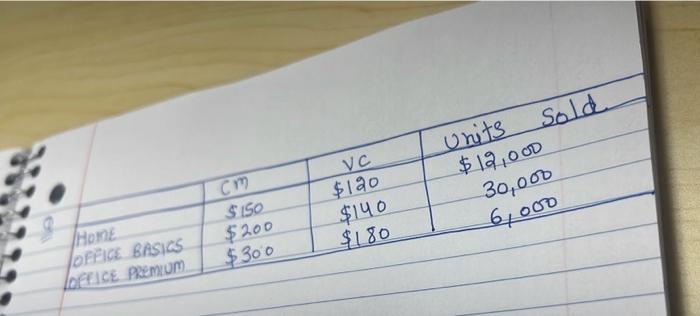 CM VC Units Sold
HOME $150 $120 $12,000
OFFICE BASICS $200 $140 30,000
OFFICE PREMIUM $300 $180 6,000